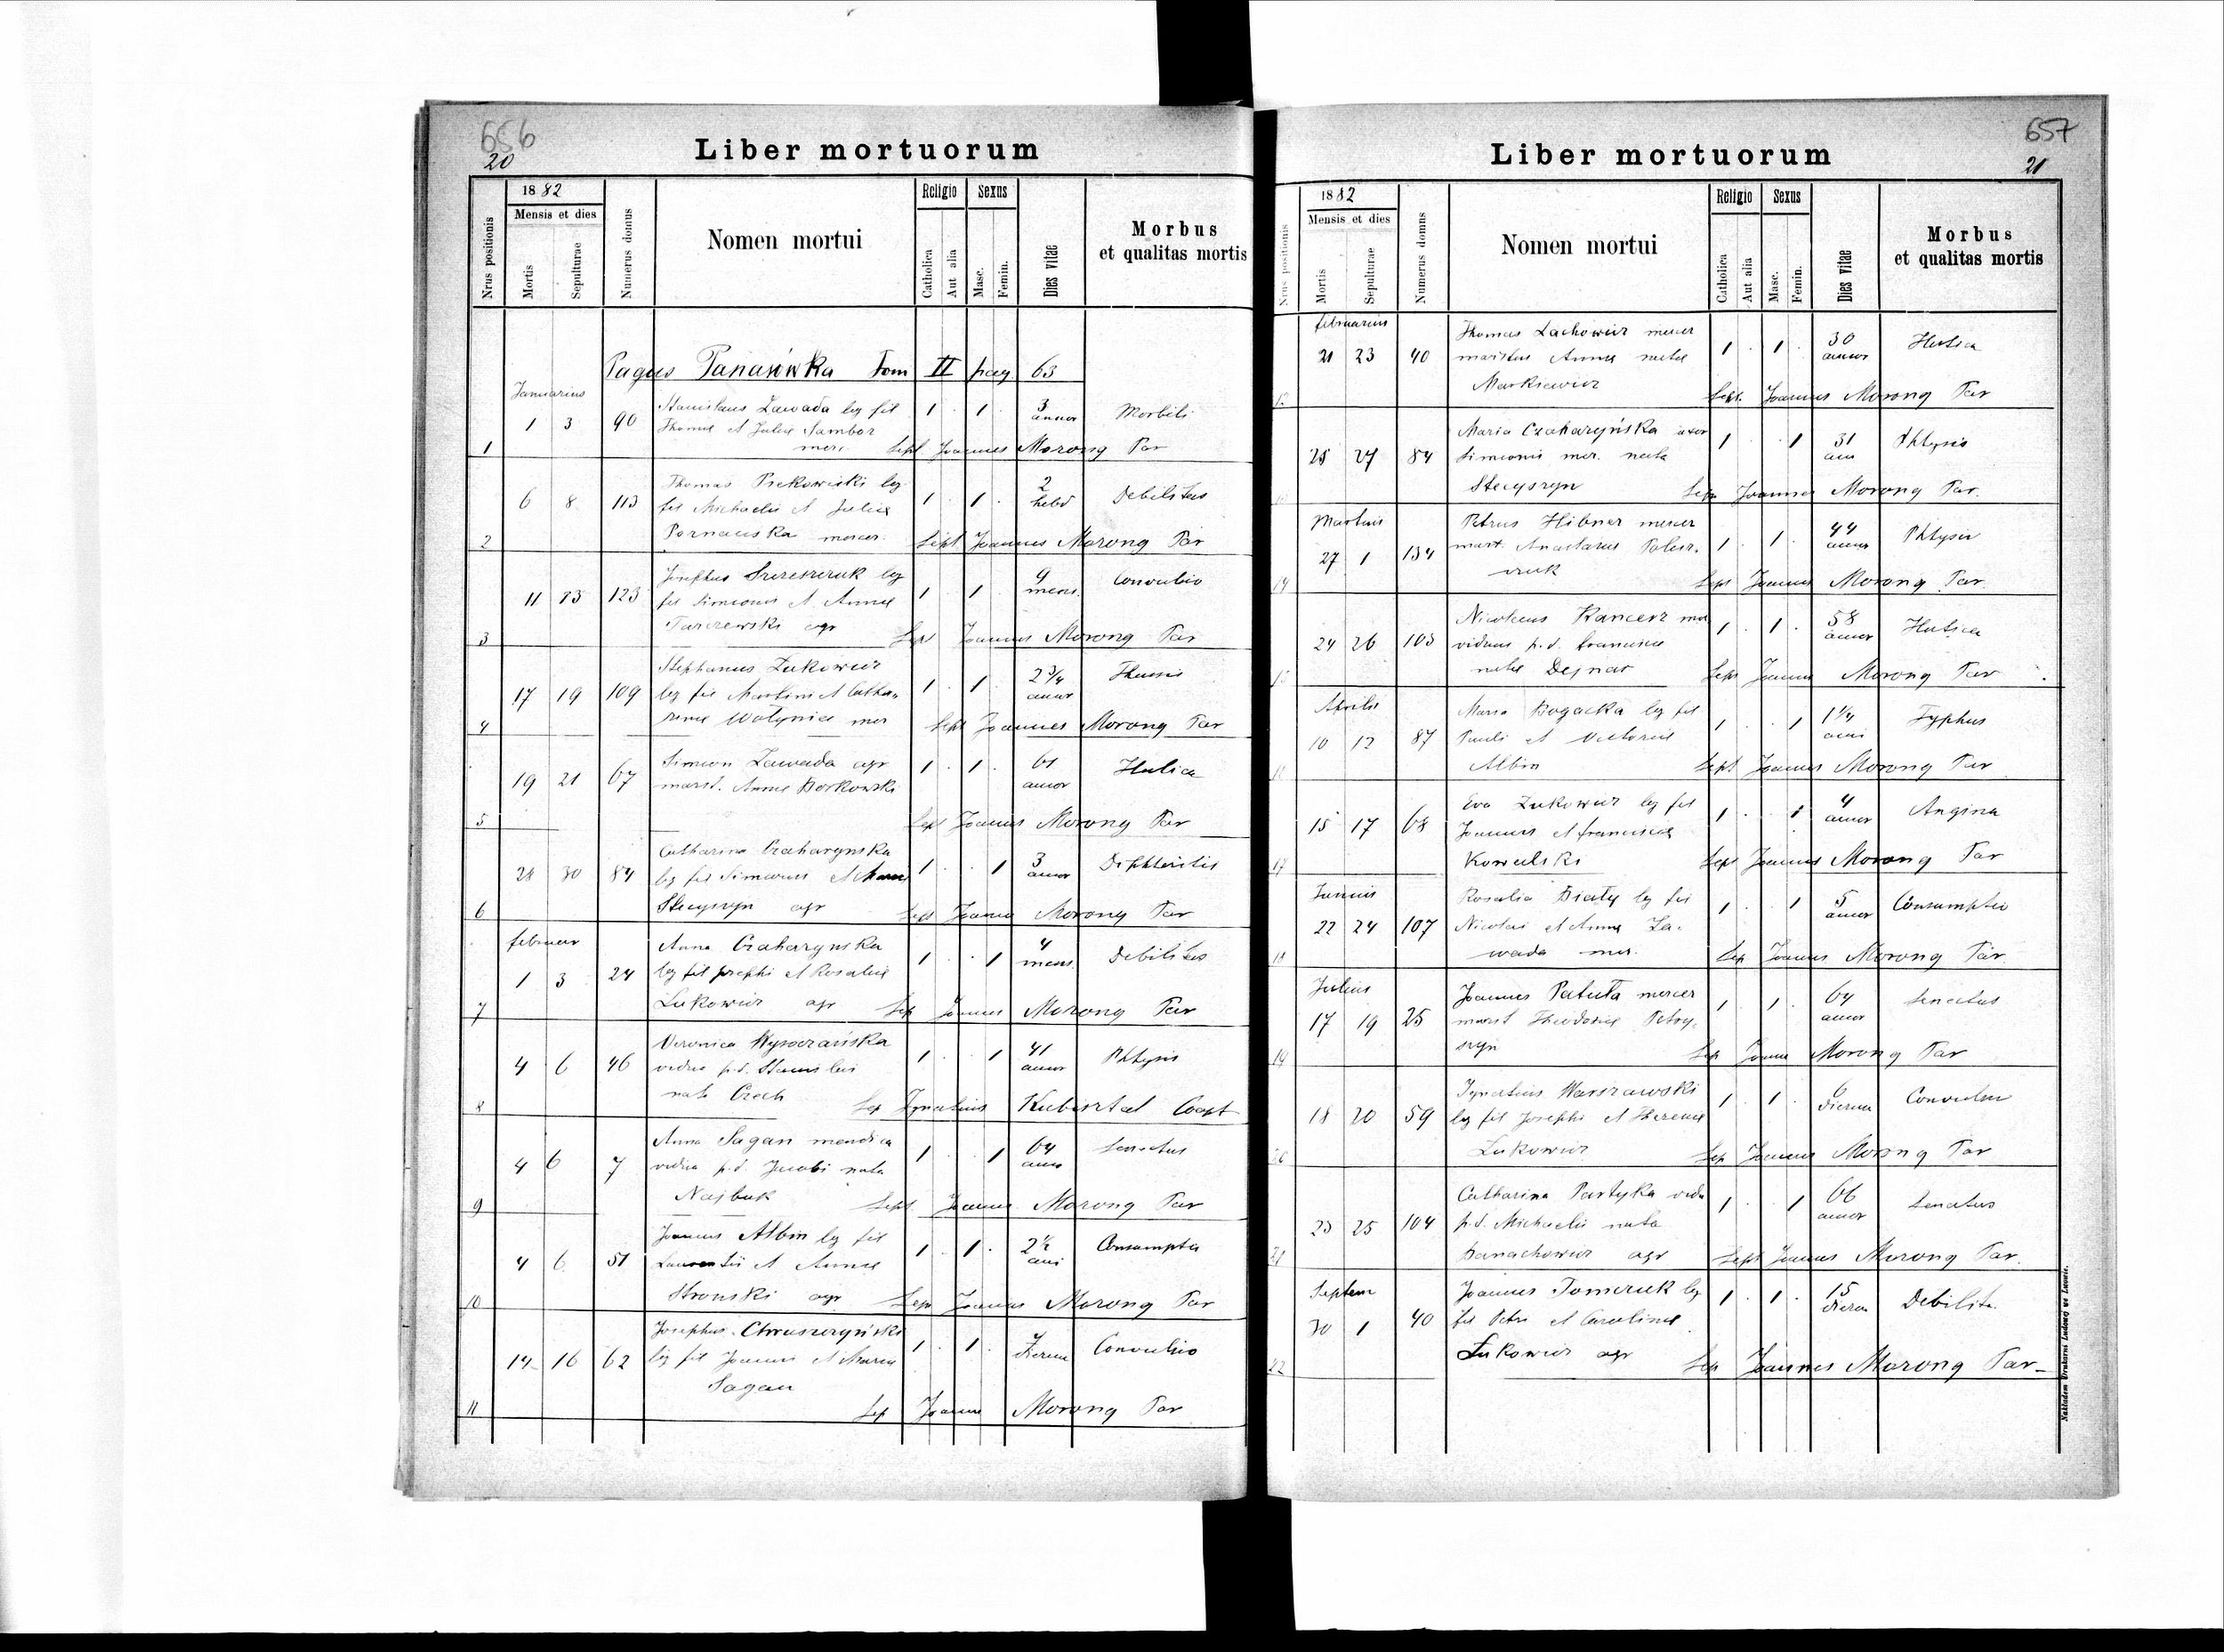 656
20
Liber mortuorum
Nrus positionis
1882
Mensis et dies
Mortis
Sepulturae
Numerus domus
Nomen mortui
Religio
Catholica
Aut alia
Sexus
Masc.
Femin.
Dies vitae
Morbus
et qualitas mortis
Pagus Panasówka Tom II pag 63
Januarius
1 3 90 Stanislaus Zawada leg fil 1 1 3 annor Morbili
Thomae et Juliae Sambor
1 mer. Sept Joannes Morong Par
6 8 113 Thomas leg 1 1 2 hebd Debilitas
fil Michaelis et Juliae
2 mercer. Sept Joannes Morong Par
11 13 123 Josephus leg 1 1 9 mens. Convulsio
fil Simeonis et Annae
3 Tarczewski agr Sep Joannes Morong Par
17 19 109 Stephanus Zukowicz 1 1 2 3/4 annor Thussis
leg fil Martini et Catha-
4 rinae Wołynice mer Sept Joannes Morong Par
19 21 67 Simeon Zawada agr 1 1 61 annor Hectica
marit. Annae Borkowski
5 Sept Joannes Morong Par
28 30 84 Catharina Czaharynska 1 1 3 annor Diphteritis
leg fil Simeonis et Mariae
6 Stecyszyn agr Sept Joannes Morong Par
februar
1 3 24 Anna Czaharynska 1 1 4 mens. Debilitas
leg fil Josephi et Rosaliae
7 Lukowicz agr Sep Joannes Morong Par
4 6 46 Veronica Wysoczańska 1 1 41 annor Phtysis
vidua p.d. Stanislai
8 nata Czech Sep Ignatius Kubisztal Coop
4 6 7 Anna Sagan mendica 1 1 64 anno Senectus
vidua p.d. Jacobi nata
9 Najbuk Sept Joannes Morong Par
4 6 51 Joannes Albin leg fil 1 1 2 1/2 ani Consumptio
Laurentii et Annae
10 Stronski agr Sep Joannes Morong Par
14 16 62 Josephus Chruszczyński 1 1 7 dierum Convulsio
leg fil Joannis et Mariae
Sagan
11 Sep Joannes Morong Par
657
21
Liber mortuorum
Nrus positionis
1882
Mensis et dies
Mortis
Sepulturae
Numerus domns
Nomen mortui
Religio
Catholica
Aut alia
Sexus
Masc.
Femin.
Dies vitae
Morbus
et qualitas mortis
februarius
21 23 40 Thomas Lachowicz mercer 1 1 30 annor Hectica
maritus Annae natae
12 Markiewicz Sept. Joannes Morong Par
25 27 84 Maria Czaharyńska uxor 1 1 31 ann Phtysis
Simeonis mer. nata
Stecyszyn Sep Joannes Morong Par.
Martius
27 1 134 Petrus Hibner mercer 1 1 44 annor Phtysis
marit. Anastasiae
14 Sept Joannes Morong Par.
24 26 103 Nicolaus Kancerz mer 1 1 58 annor Hectica
viduus p.d. franciscae
15 natae Dejnar Sep Joannes Morong Par
Aprilis
10 12 87 Maria Bogacka leg fil 1 1 1 1/4 ani Typhus
Pauli et Victoriae
Albin Sept Joannes Morong Par
15 17 68 Eva Zukowicz leg fil 1 1 4 annor Angina
Joannis et franciscae
17 Kowalski Sept Joannes Morong Par
Junius
22 24 107 Rosalia Biały leg fil 1 1 5 annor Consumptio
Nicolai et Annae Za-
18 wada mer. Sep Joannes Morong Par.
Julius
17 19 25 Joannes Patuła mercer 1 1 64 annor Senectus
marit Theodosiae Petry-
19 szyn Sep Joannes Morong Par
18 20 59 Ignatius Warszawski 1 1 6 dierum Convulsio
leg fil Josephi et Theresiae
20 Lukowicz Sep Joannes Morong Par
23 25 104 Catharina Partyka vidua 1 1 66 annor Senectus
p.d. Michaelis nata
21 Danachowicz agr Sept Joannes Morong Par.
Septem
30 1 40 Joannes Tomczuk leg 1 1 15 dierum Debilita.
fil Petri et Carolinae
22 Łukowicz agr Sep Joannes Morong Par
Nakładem Drukarni Ludowej we Lwowie.